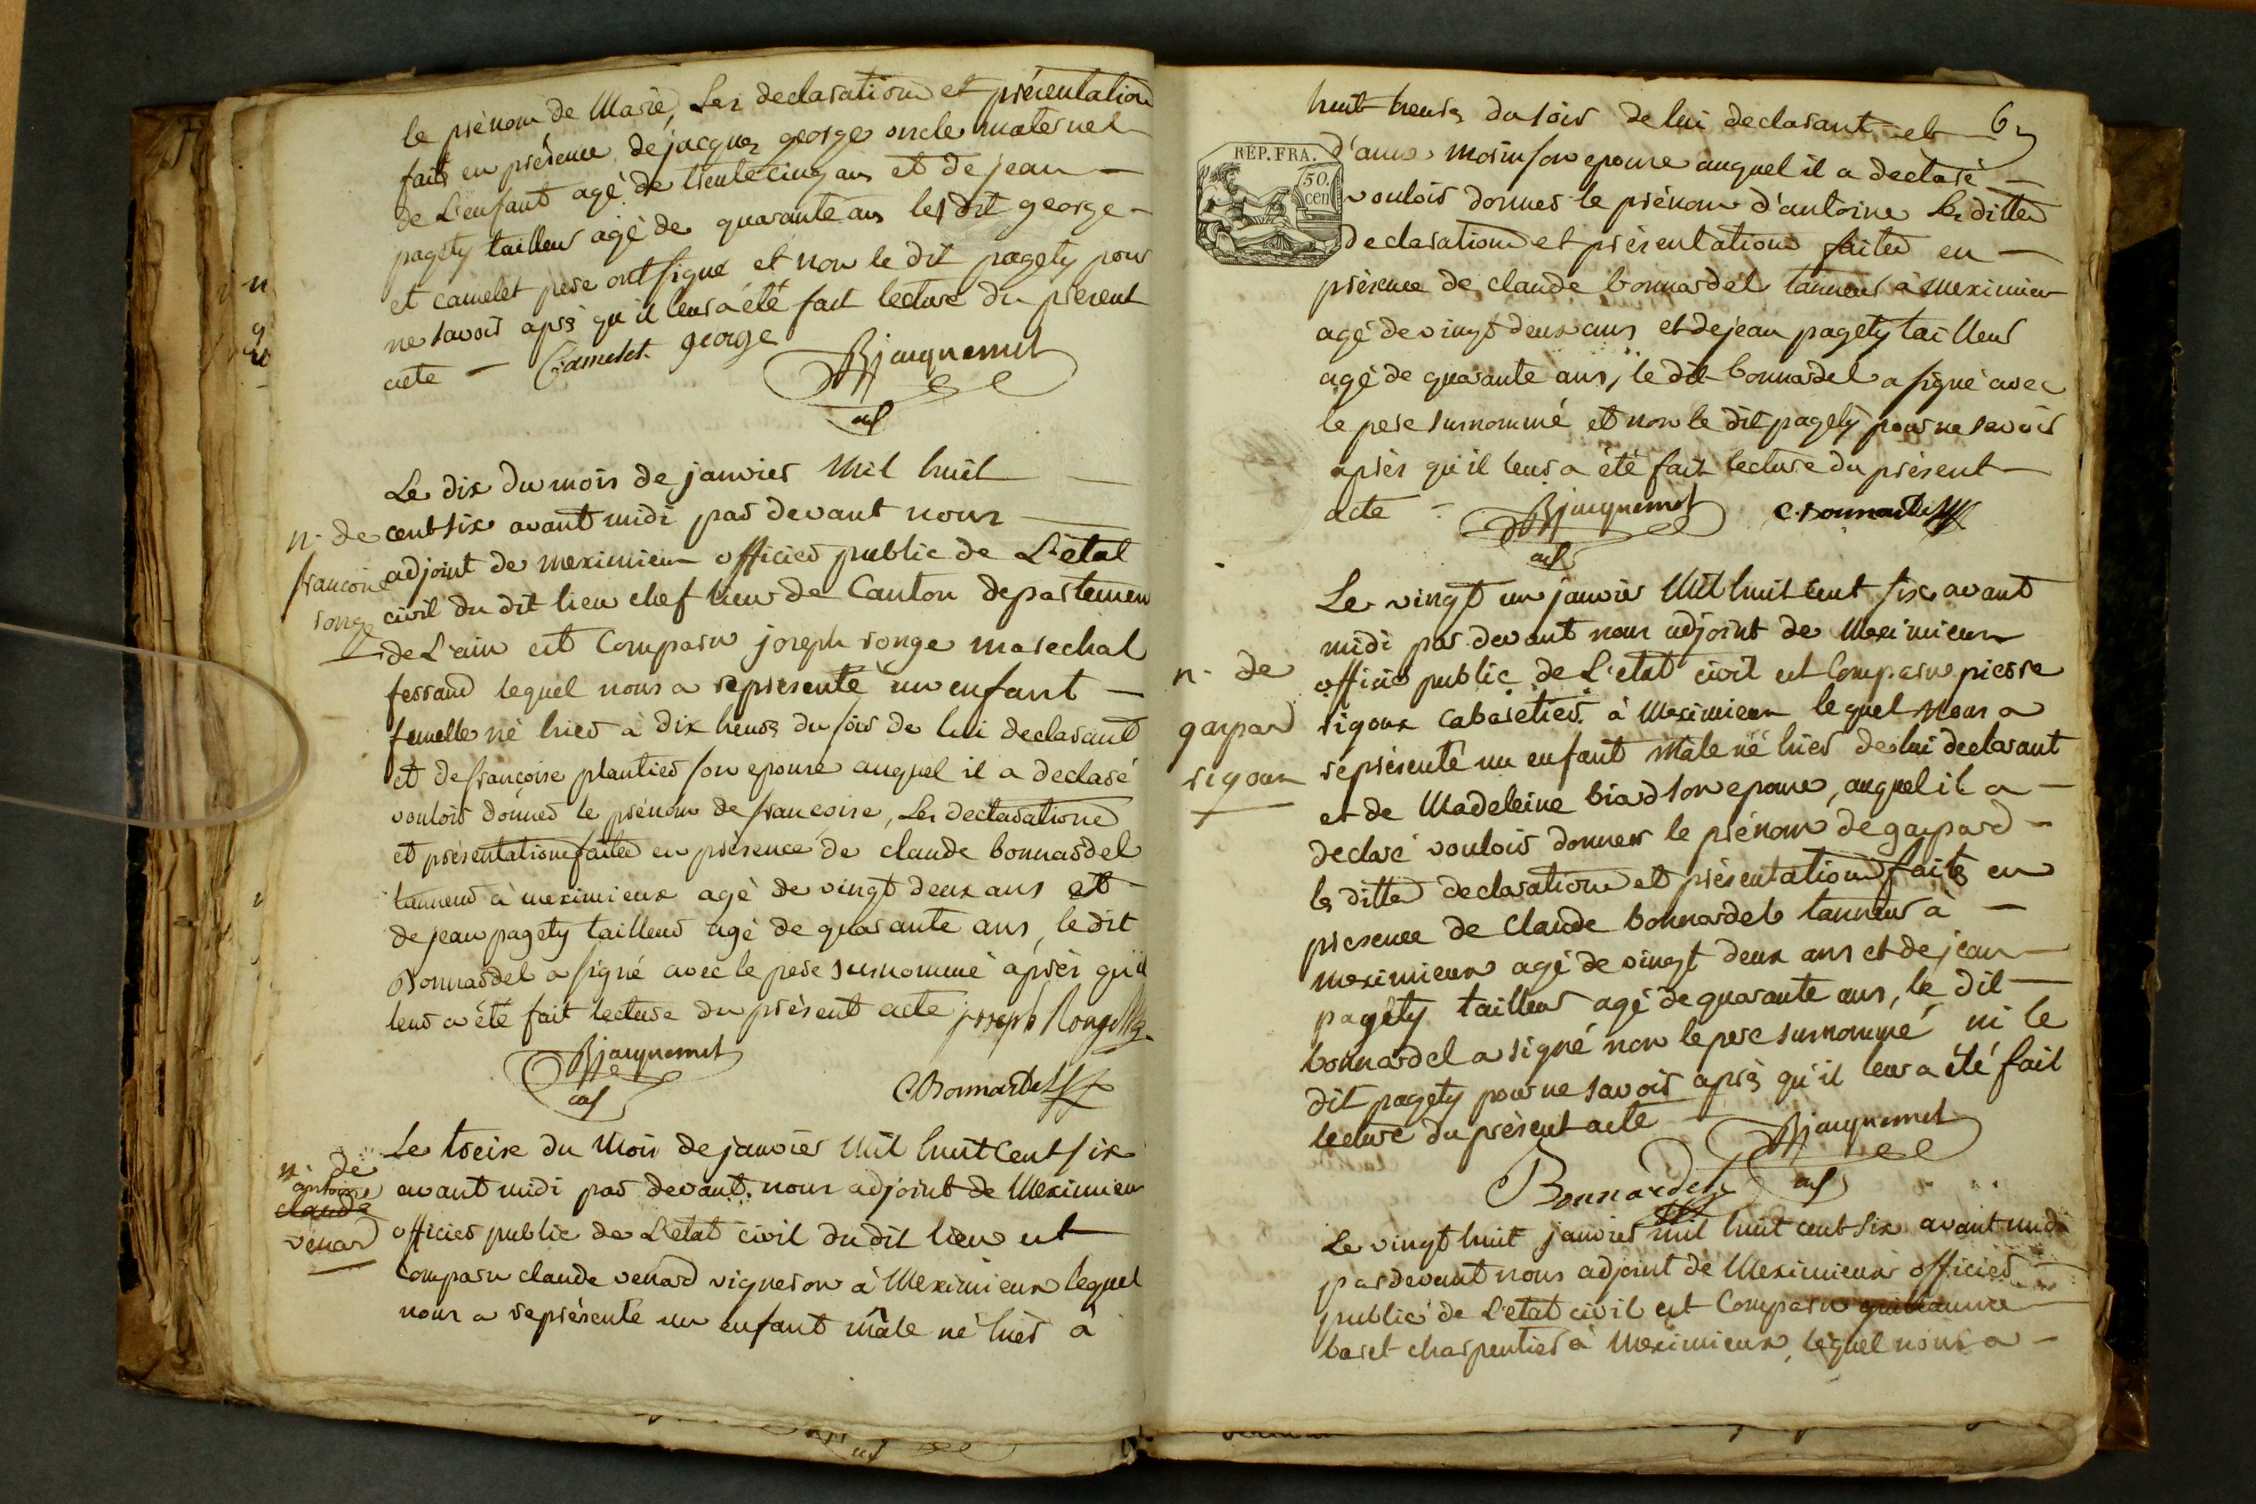 le prénom de Marie, Les declarations et présentation
faits en présence de jacques george oncle maternel
de L'enfant agé de trente cinq ans et de jean
pagéty tailleur agé de quarante ans lesdit george
et camelet pere ont signé et non le dit pagéty pour
ne savoir après qu'il leur a été fait lecture du présent
acte Camelet george BJacquemet
adj
n. de
francoise
ronge
Le dix du mois de janvier Mil huit
cent six avant midi par devant nous
adjoint de meximieux officier public de L'état
civil du dit lieu chef lieu de Canton departement
de L'ain est Comparu joseph ronge marechal
ferrand lequel nous a représenté un enfant
femelle né hier a dix heures du soir de lui declarant
et de françoise plantier son epouse auquel il a declaré
vouloir donner le prénom de francoise, Les declarations
et présentations faites en présence de claude bonnardel
tanneur à meximieux agé de vingt deux ans et
de jean pagéty tailleur agé de quarante ans, le dit
Bonnardel a signé avec le pere surnommé après qu'il
leur a été fait lecture du présent acte joseph Ronge
BJacquemet
adj
CBonnardel
n. de
antoine
claude
venard
Le treize du Mois de janvier Mil huit Cent six
avant midi par devant nous adjoint de Meximieux
officier public de L'état civil du dit lieu est
Comparu claude venard vigneron à Meximieux lequel
nous a représenté un enfant mâle né hier à
huit heures du soir de lui declarant, et
RÉP. FRA.
50.
cen
d'anne morin son epouse auquel il a declaré
vouloir donner le prénom d'antoine les dittes
declarations et présentations faites en
présence de claude bonnardel tanneur à meximieux
agé de vingt deux ans et de jean pagéty tailleur
agé de quarante ans, le dit bonnardel a signé avec
le pere surnommé et non le dit pagéty pour ne savoir
après qu'il leur a été fait lecture du présent
acte BJacquemet C.Bonnardel
adj
n. de
gaspard
rigoux
Le vingt un janvier Mil huit cent six avant
midi par devant nous adjoint de Meximieux
officier public de L'état civil est Comparu pierre
rigoux cabaretier à Meximieux lequel Nous a
représenté un enfant Male né hier de lui declarant
et de Madeleine biard son epouse, auquel il a
declaré vouloir donner le prénom de gaspard
les dittes declarations et présentations faites en
presence de Claude bonnardel tanneur à
meximieux agé de vingt deux ans et de jean
pagéty tailleur agé de quarante ans, le dit
bonnardel a signé non le pere surnommé ni le
dit pagéty pour ne savoir après qu'il leur a été fait
lecture du présent acte BJacquemet
Bonnardel adj
Le vingt huit janvier mil huit cent six avant midi
par devant nous adjoint de Meximieux officier
public de L'état civil est Comparu guillaume
baret charpentier à Meximieux, lequel nous a